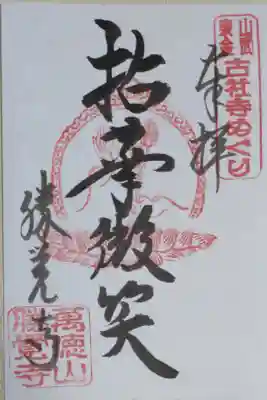 山武
東金
古社寺めぐり
奉拝
拈華微笑
勝覚寺
萬徳山
勝覚寺